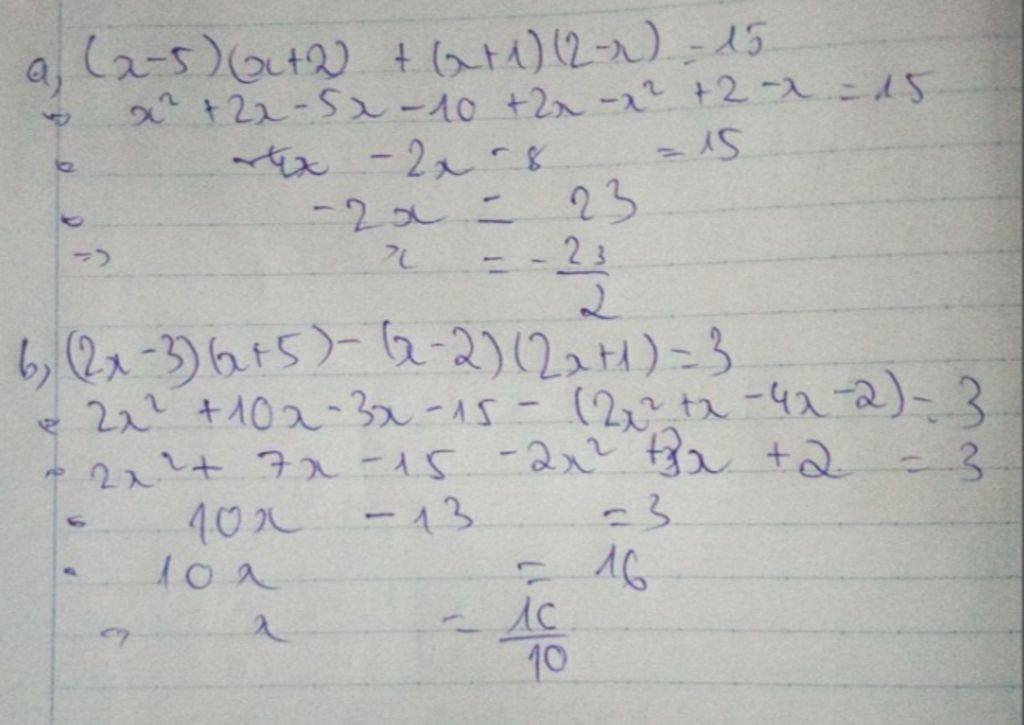 a, (x-5)(x+2) + (x+1)(2-x) = 15
x² + 2x - 5x - 10 + 2x - x² + 2 - x = 15
- 2x - 8 = 15
-2x = 23
=> x = - 23/2
b, (2x-3)(x+5) - (x-2)(2x+1) = 3
2x² + 10x - 3x - 15 - (2x² + x - 4x - 2) = 3
2x² + 7x - 15 - 2x² + 3x + 2 = 3
10x - 13 = 3
10x = 16
x = 16/10